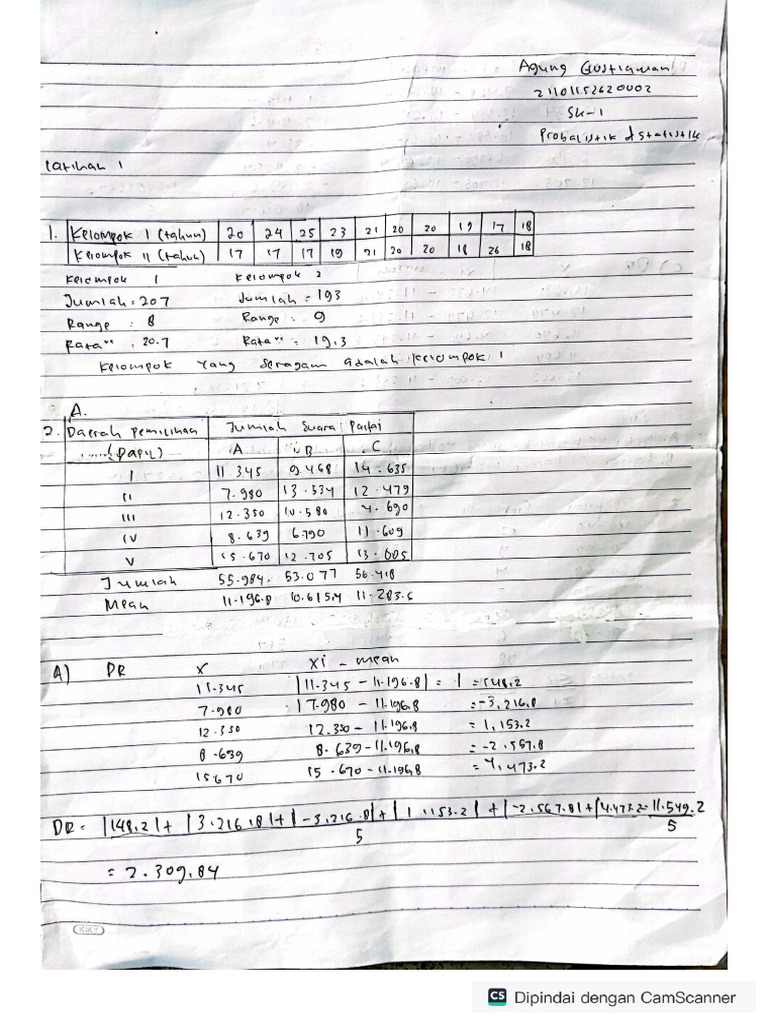 Agung Gustiawan
21101152620002
SK-1
Probalistik & Statistik
Latihan 1
1. Kelompok I (tahun) 20 24 25 23 21 20 20 19 17 18
Kelompok II (tahun) 17 17 17 19 21 20 20 18 26 18
Kelompok 1 Kelompok 2
Jumlah = 207 Jumlah = 193
Range : 8 Range : 9
Rata" : 20.7 Rata" = 19,3
Kelompok Yang Seragam adalah Kelompok 1
A.
2. Daerah Pemilihan Jumlah Suara Partai
(Dapil) A B C
I 11 345 9.468 14.635
II 7.980 13.534 12.479
III 12.350 10.580 4.690
IV 8.639 6.790 11.609
V 15.670 12.705 13.005
Jumlah 55.984. 53.077 56.418
Mean 11.196.8 10.615.4 11.283.6
A) DR X Xi - mean
11.345 |11.345 - 11.196.8| = | = 148.2
7.980 17.980 - 11.196.8 = -3,216.8
12.350 12.350 - 11.196,8 = 1,153.2
8.639 8.639 - 11.196,8 = -2.557.8
15.670 15.670 - 11.196,8 = 4,473.2
DR = |148.2| + |3.216.18| + |-3,216.8| + |1.1153.2| + |-2.567.81 + |4.473.2 = 11.549.2
5 5
= 2.309,84
KKY
CS Dipindai dengan CamScanner